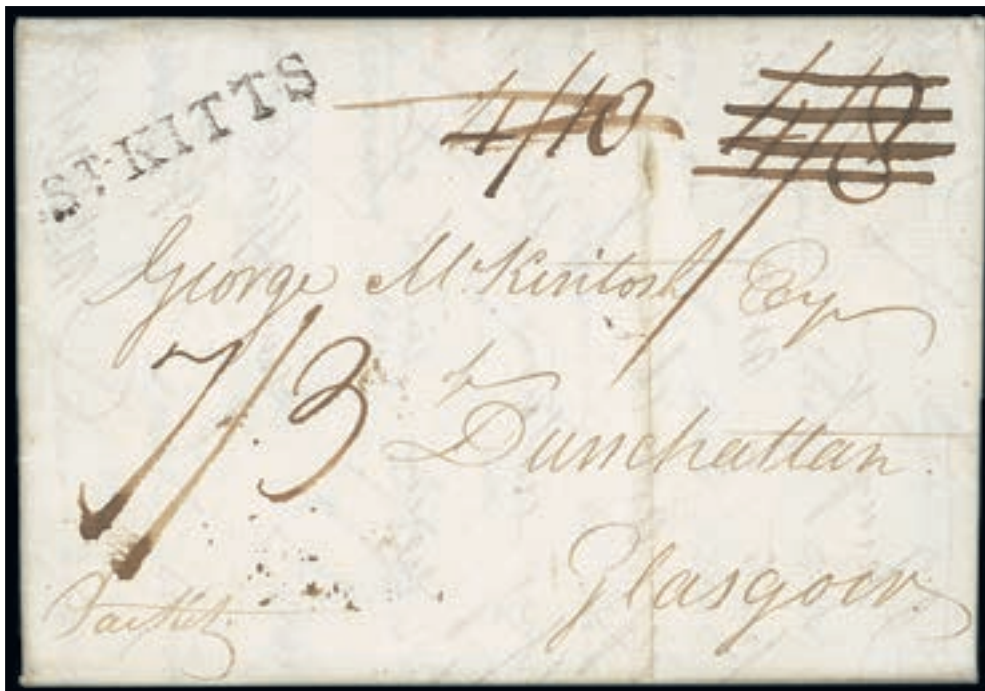 ST. KITTS
4/10
4/8
George McKintosh Esqr
of
Dunchattan.
Glasgow.
7/3
Packet.